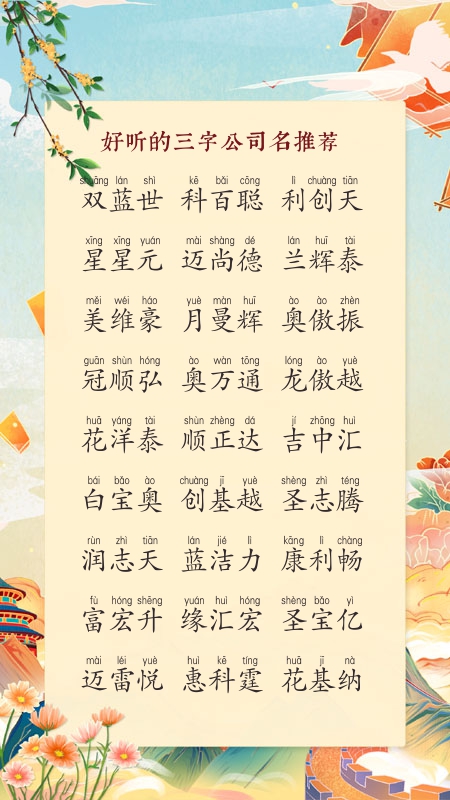 好听的三字公司名推荐
shuāng lán shì kē bǎi cōng lì chuàng tiān
双蓝世 科百聪 利创天
xīng xīng yuán mài shàng dé lán huī tài
星星元 迈尚德 兰辉泰
měi wéi háo yuè màn huī ào ào zhèn
美维豪 月曼辉 奥傲振
guān shùn hóng ào wàn tōng lóng ào yuè
冠顺弘 奥万通 龙傲越
huā yáng tài shùn zhèng dá jí zhōng huì
花洋泰 顺正达 吉中汇
bái bǎo ào chuàng jī yuè shèng zhì téng
白宝奥 创基越 圣志腾
rùn zhì tiān lán jié lì kāng lì chàng
润志天 蓝洁力 康利畅
fù hóng shēng yuán huì hóng shèng bǎo yì
富宏升 缘汇宏 圣宝亿
mài léi yuè huì kē tíng huā jī nà
迈雷悦 惠科霆 花基纳